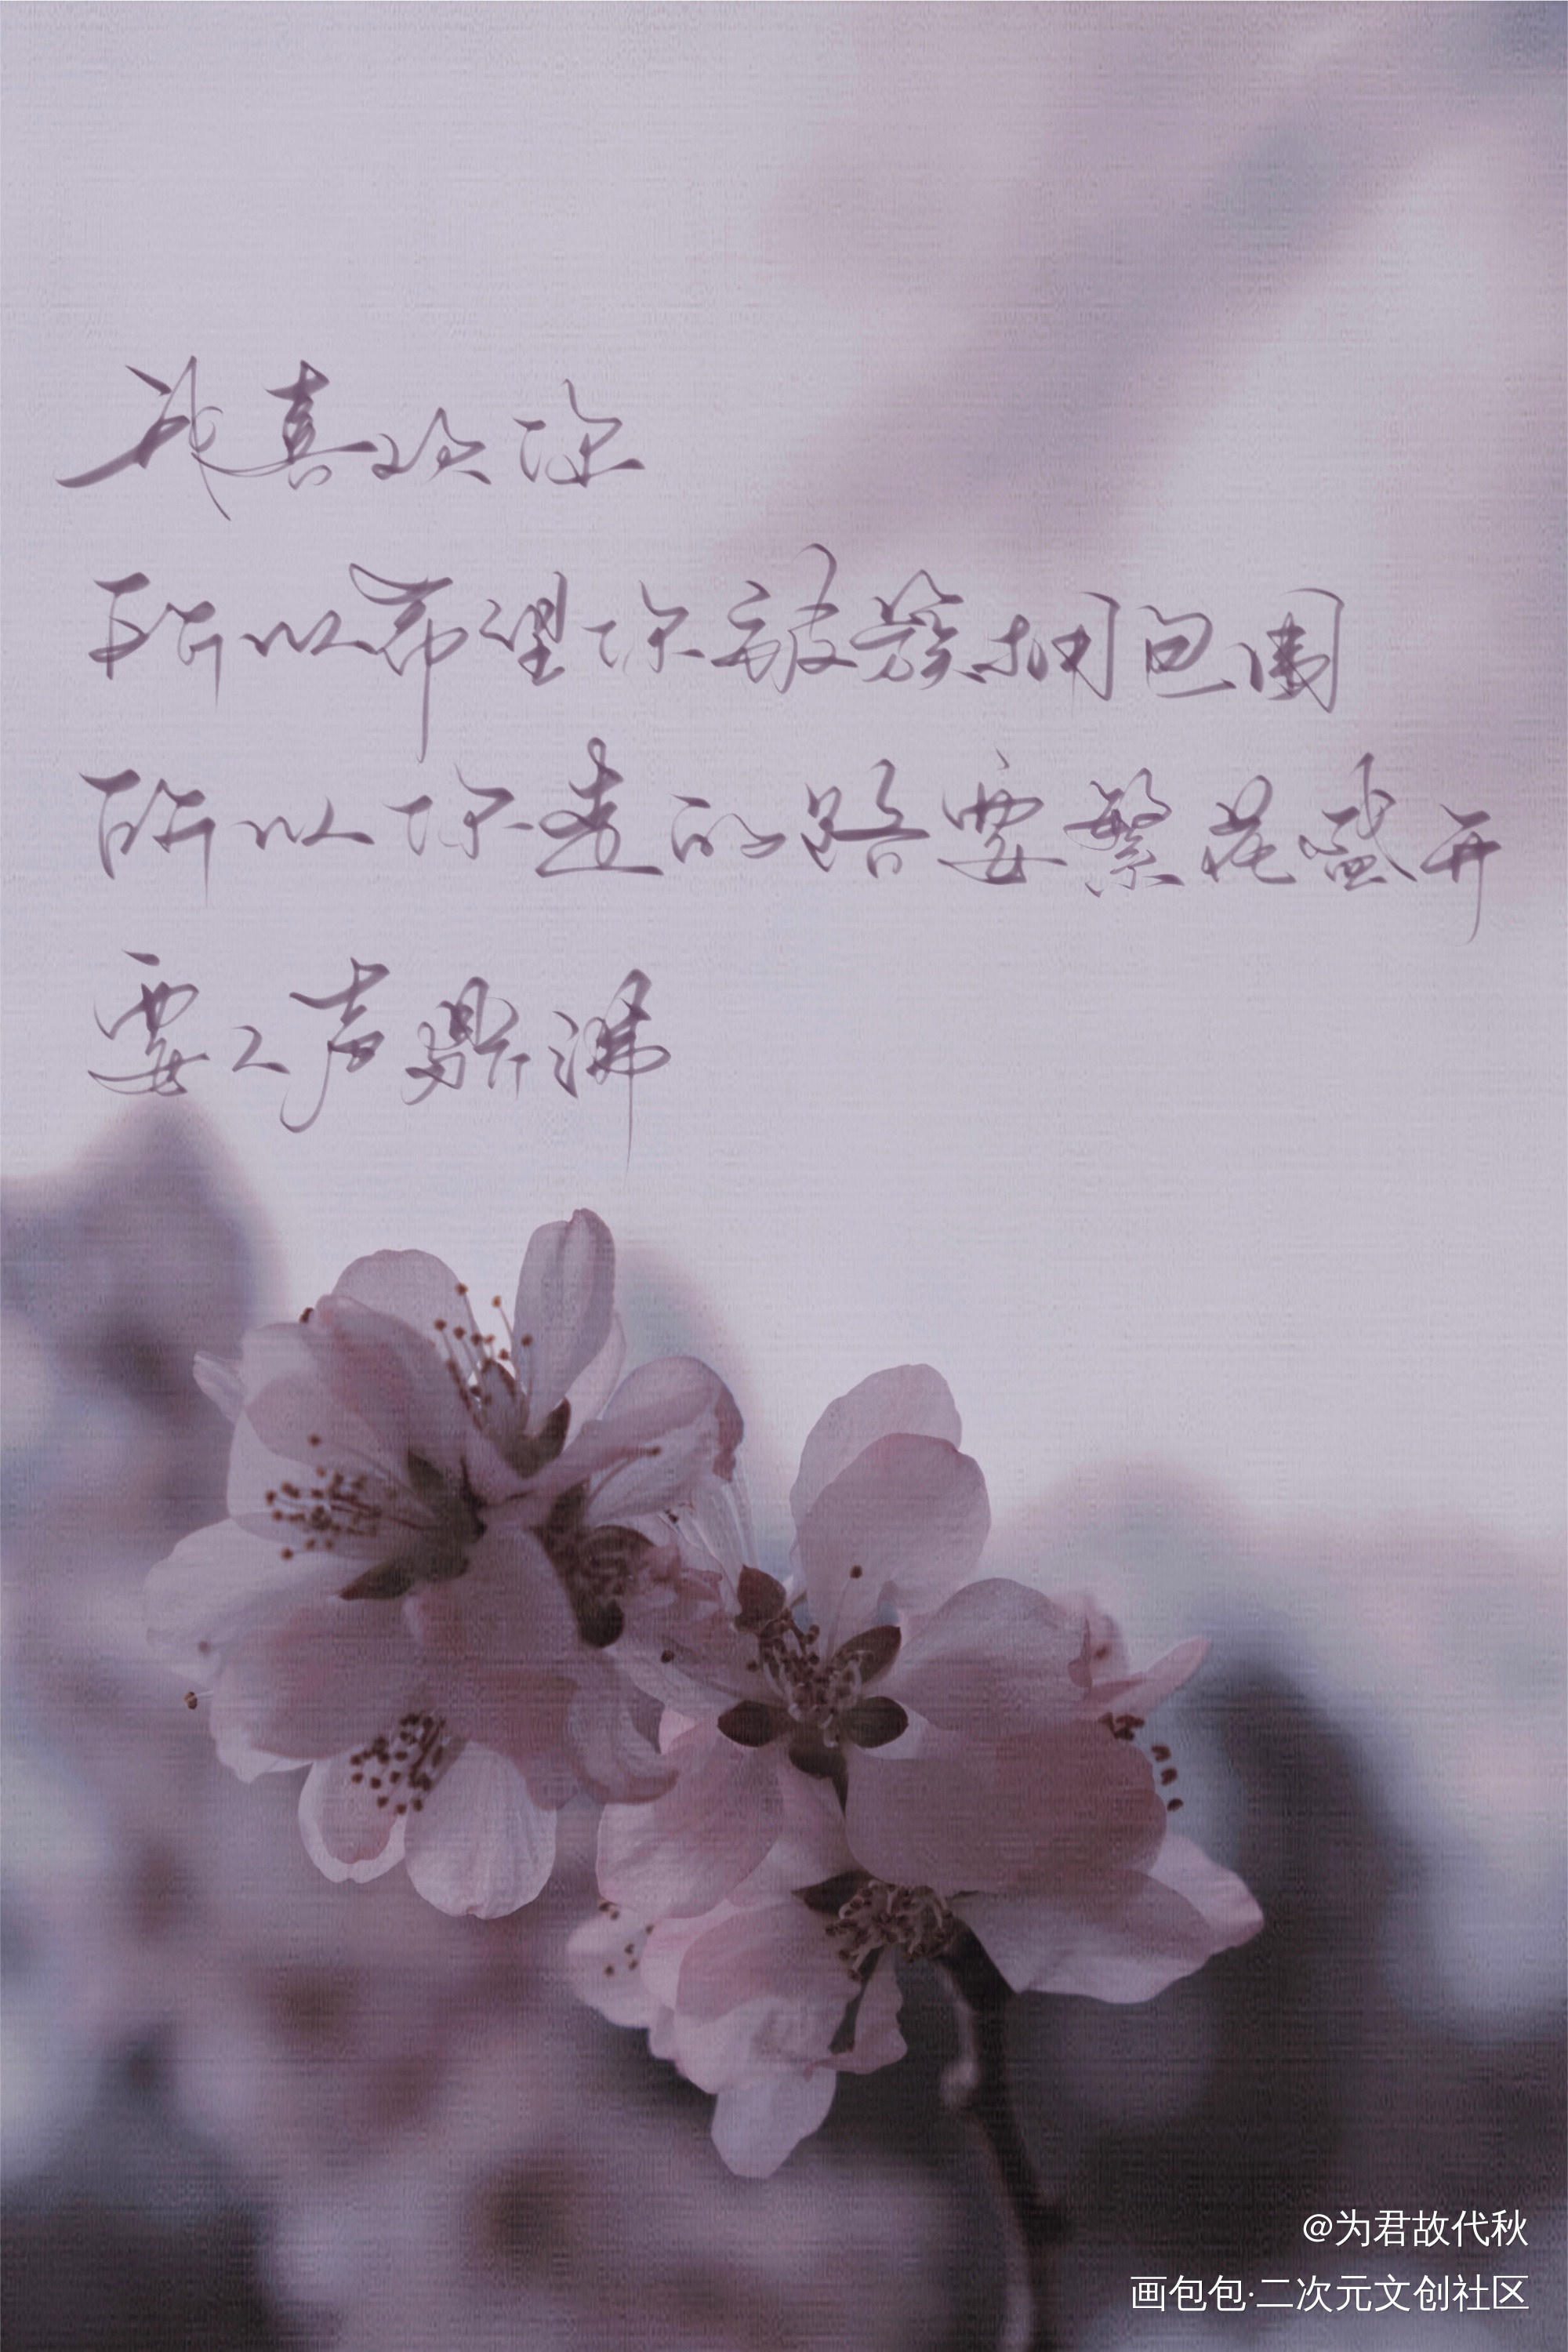 我真欢你
所以希望你被簇拥包围
所以你走的路要繁花盛开
要人声鼎沸
@为君故代秋
画包包·二次元文创社区